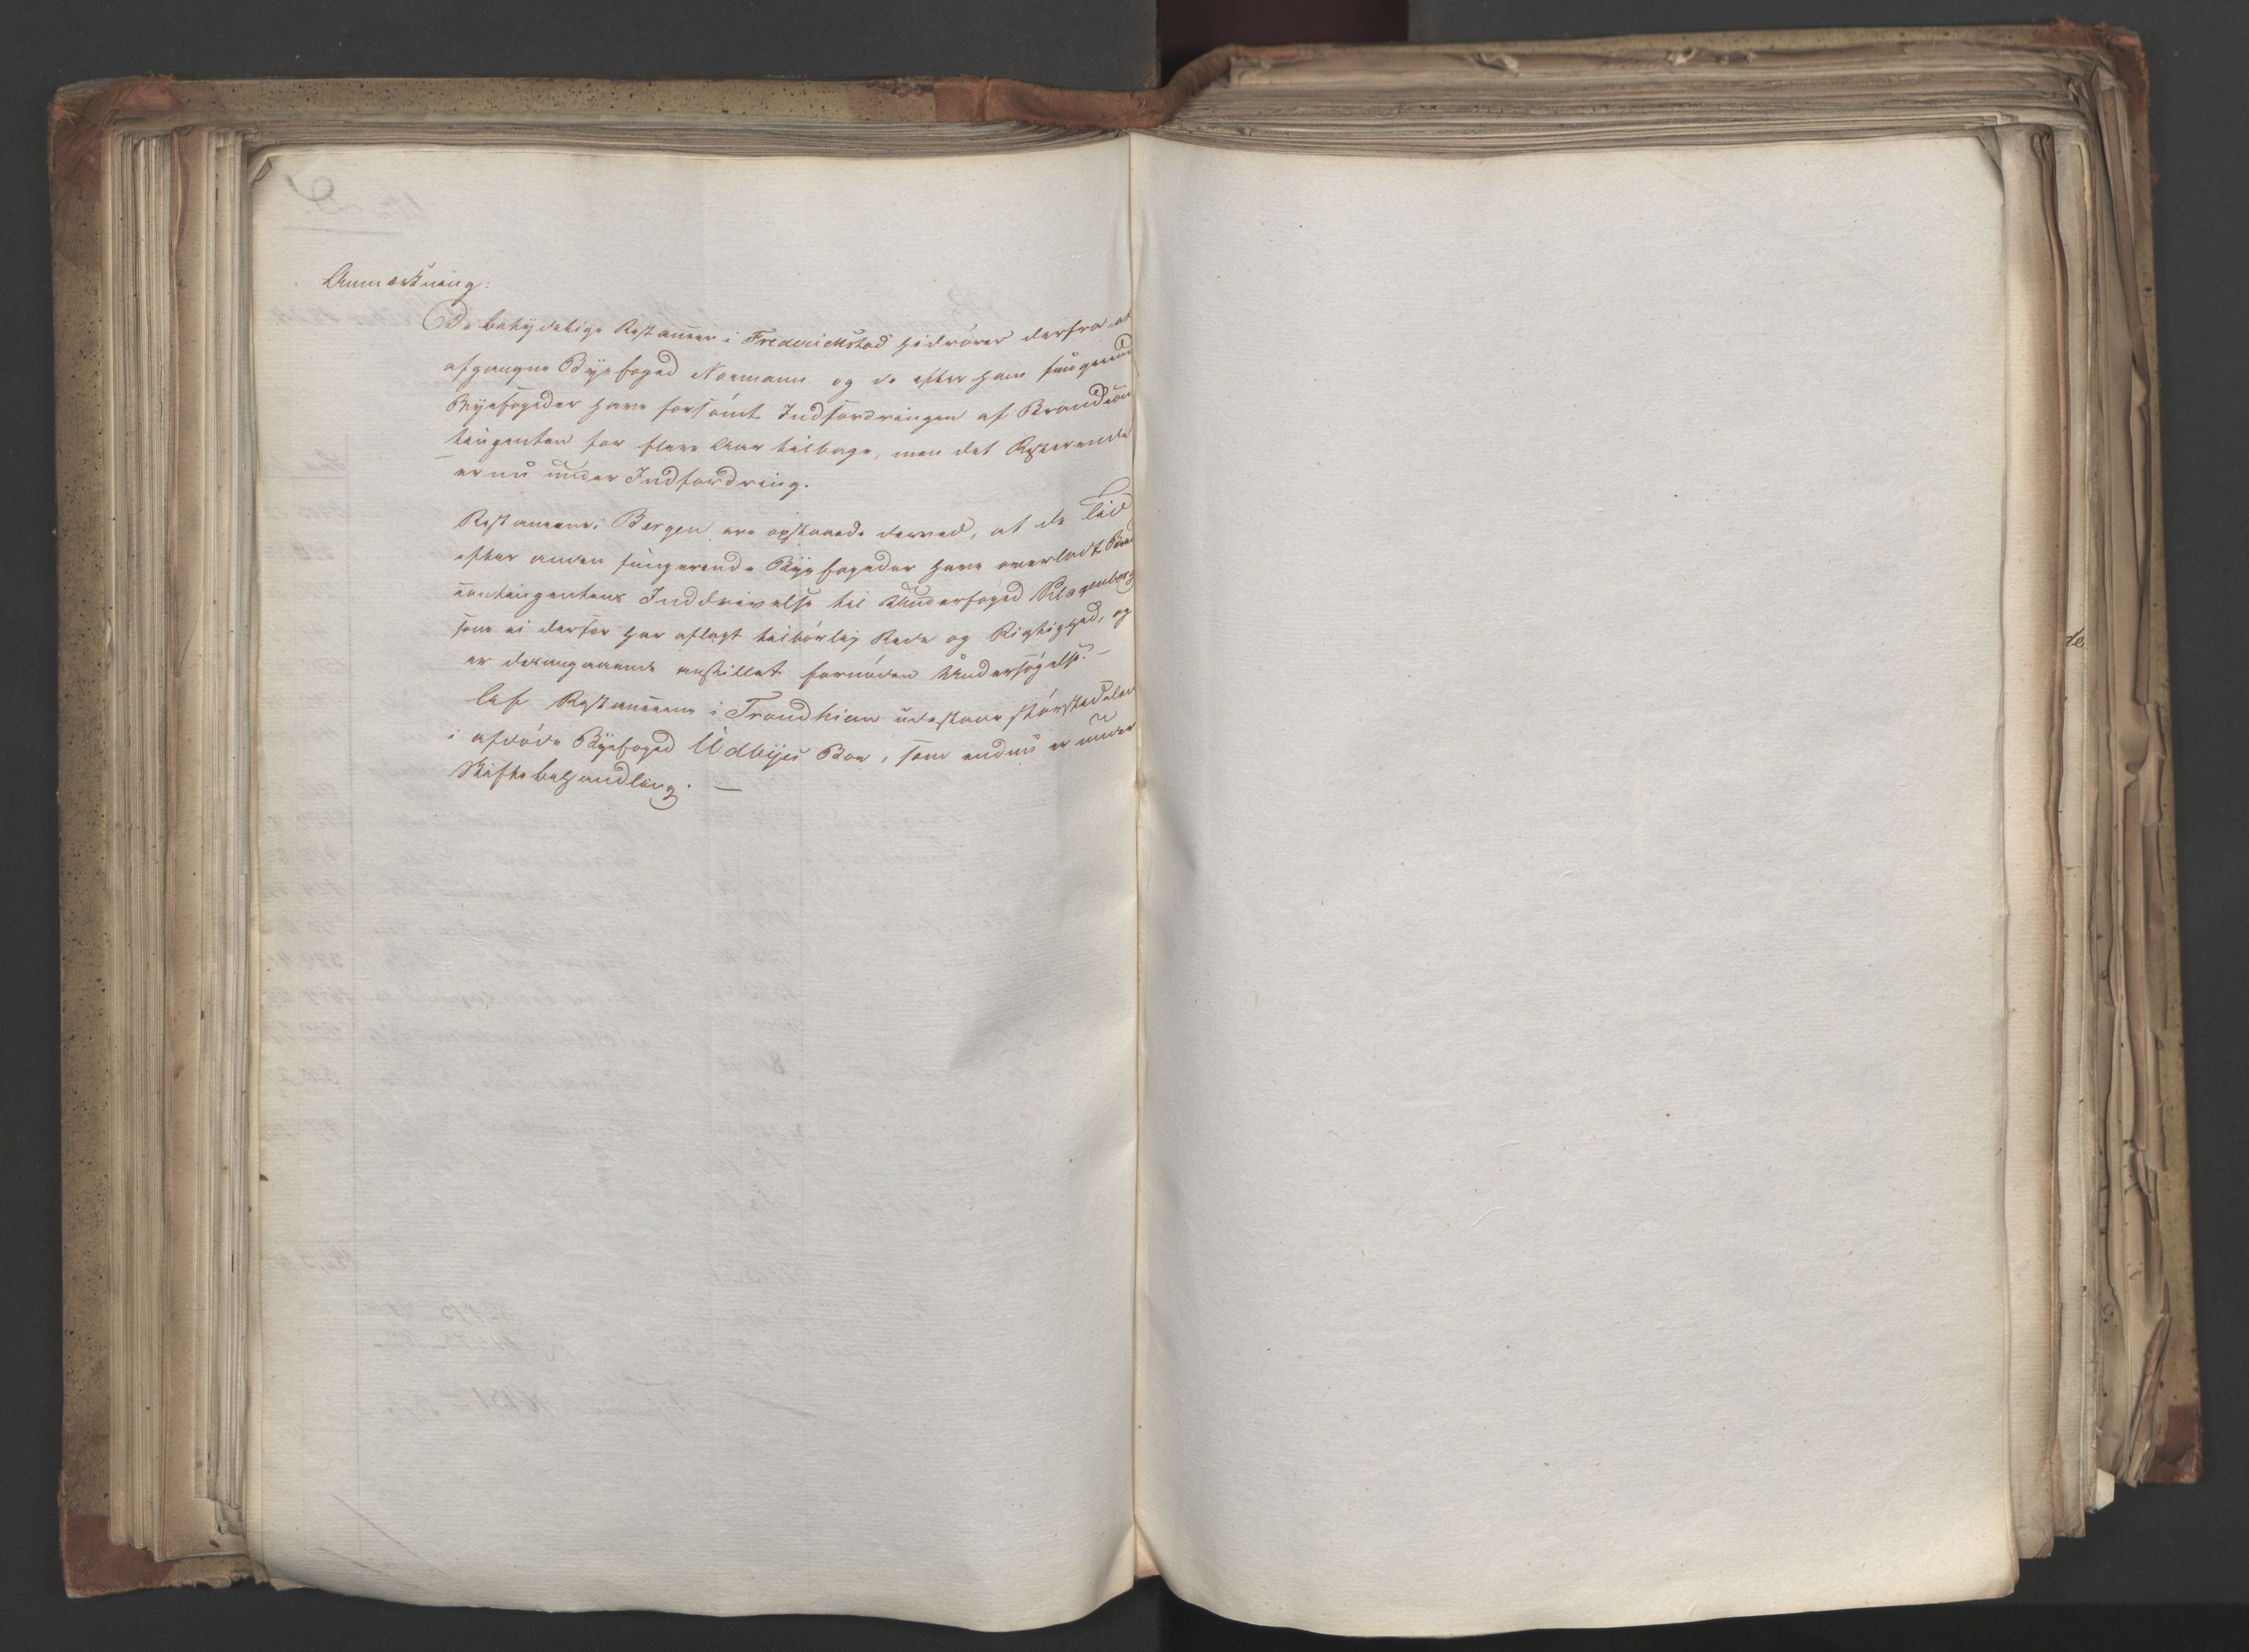 Anmærkning:
De betydelige Restancer i Frederickstad hidrører derfra, at
afgangne Byefoged Normann og de efter ham fungerend
Byefogeder have forsømt Indfordringen af Brandcon
tingenten for flere Aar tilbage, men det Resterende
er nu under Indfordring.
Restancerne i Bergen ere opstaaede derved, at de Tid
efter anden fungerende Byefogeder have overladt Brand
contingentens Inddrivelse til Underfoged
som ei derfor har aflagt tilbørlig Rede og Rigtighed, og
er desangaaende anstillet fornøden Undersøgelse. —
Af Restancerne i Trondhiem udestaae størstedelen
i afdøde Byefoged Udbyes Boe, som endnu er under
Skiftebehandling. —
de